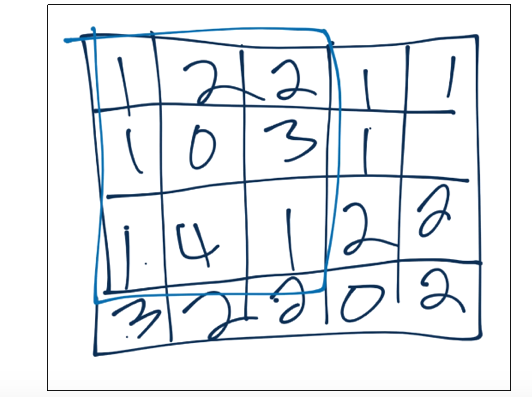 1 2 2 1 1
1 0 3 1
1 4 1 2 2
3 2 2 0 2